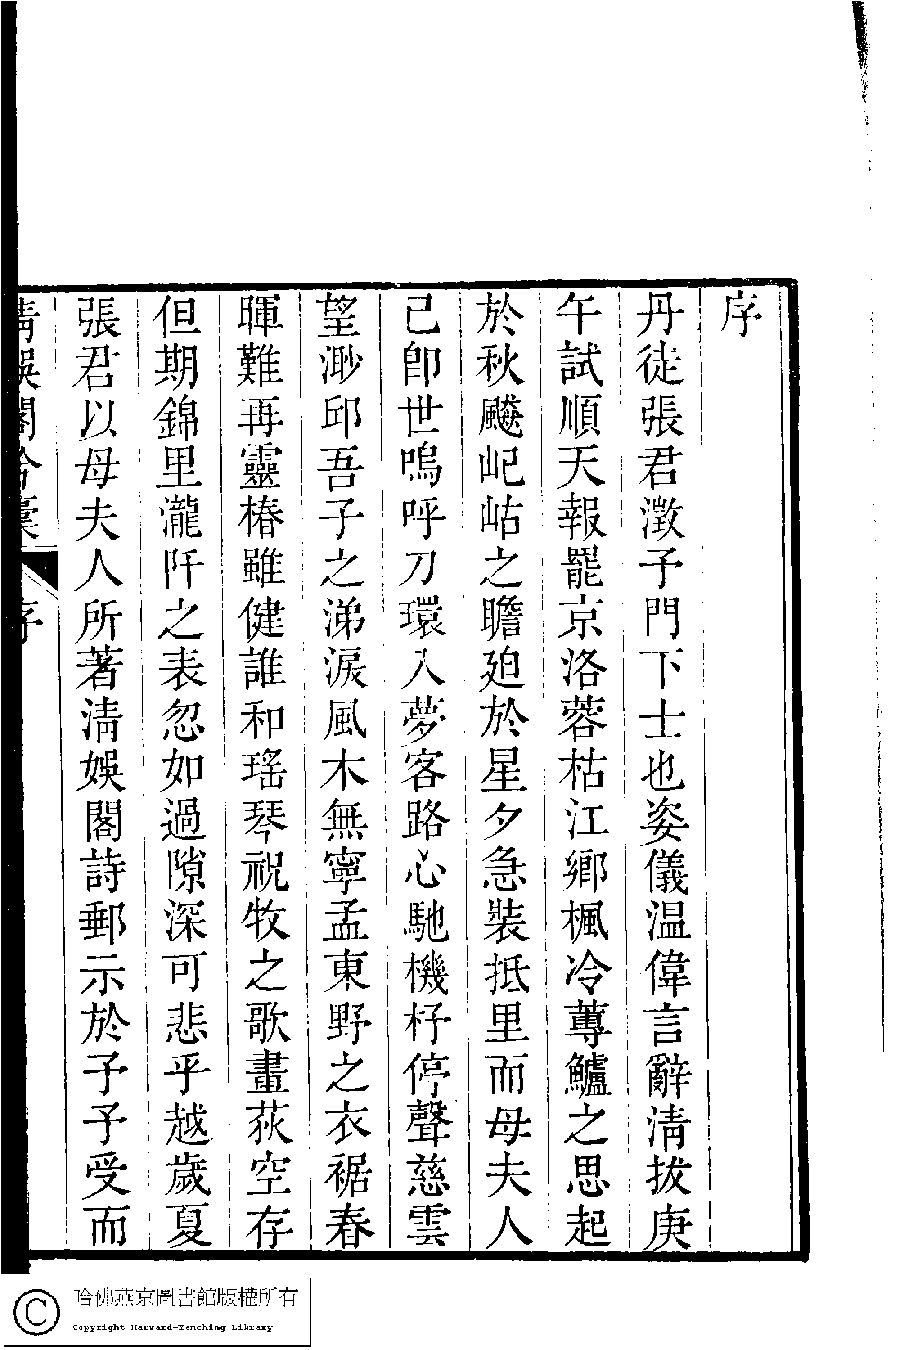 序
丹徒張君澂予門下士也姿儀温偉言辭淸拔庚
午試順天報罷京洛蓉枯江鄉楓冷蓴鱸之思起
於秋飈屺岵之瞻廹於星夕急裝抵里而母夫人
已卽世嗚呼刀環入夢客路心馳機杼停聲慈雲
望渺邱吾子之涕淚風木無寧孟東野之衣裾春
暉難再靈椿雖健誰和瑤琴祝牧之歌畫荻空存
但期錦里瀧阡之表忽如過隙深可悲乎越歲夏
張君以母夫人所著淸娛閣詩郵示於予予受而
淸娛閣吟稾
序
哈佛燕京圖書館版權所有
Copyright Harvard-Yenching Library